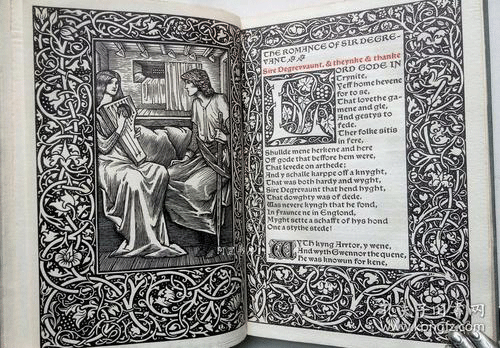 THE ROMANCE OF SIR DEGRE-
VANT.
Sire Degrevvaunt, & theynke & thanke
LORD GODE IN
Trynite,
Yeff home hevene
for to se,
That lovethe ga-
mene and gle,
And gestys to
fede.
Ther folke sitis
in fere,
Shullde mene herkene and here
Off gode that beffore hem were,
That levede on arthede:
And y schalle karppe off a knyght,
That was both hardy and wyght,
Sire Degrevaunt that hend hyght,
That dowghty was of dede.
Was nevere kyngh that he fond,
In Fraunce ne in Englond,
Myght sette a schafft of hys hond
One a stythe stede!
WYTH kyng Arrtor, y wene,
And wyth Gwennor the quene,
He was knowun for kene,
www.kongfz.com